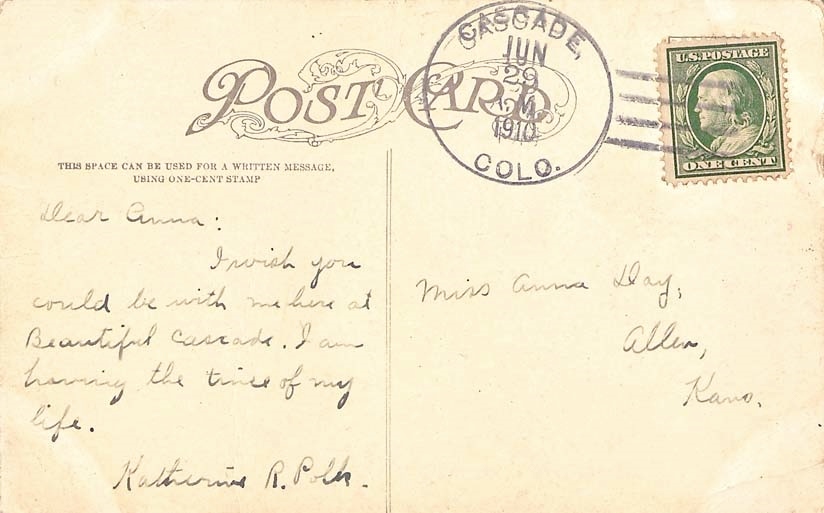 POST CARD
CASCADE,
JUN
29
1910
COLO.
U.S. POSTAGE
ONE CENT
THIS SPACE CAN BE USED FOR A WRITTEN MESSAGE,
USING ONE-CENT STAMP
Dear Anna:
I wish you
could be with me here at
Beautiful Cascade. I am
having the time of my
life.
Katherine R. Polk.
Miss Anna Day,
Allen,
Kans.